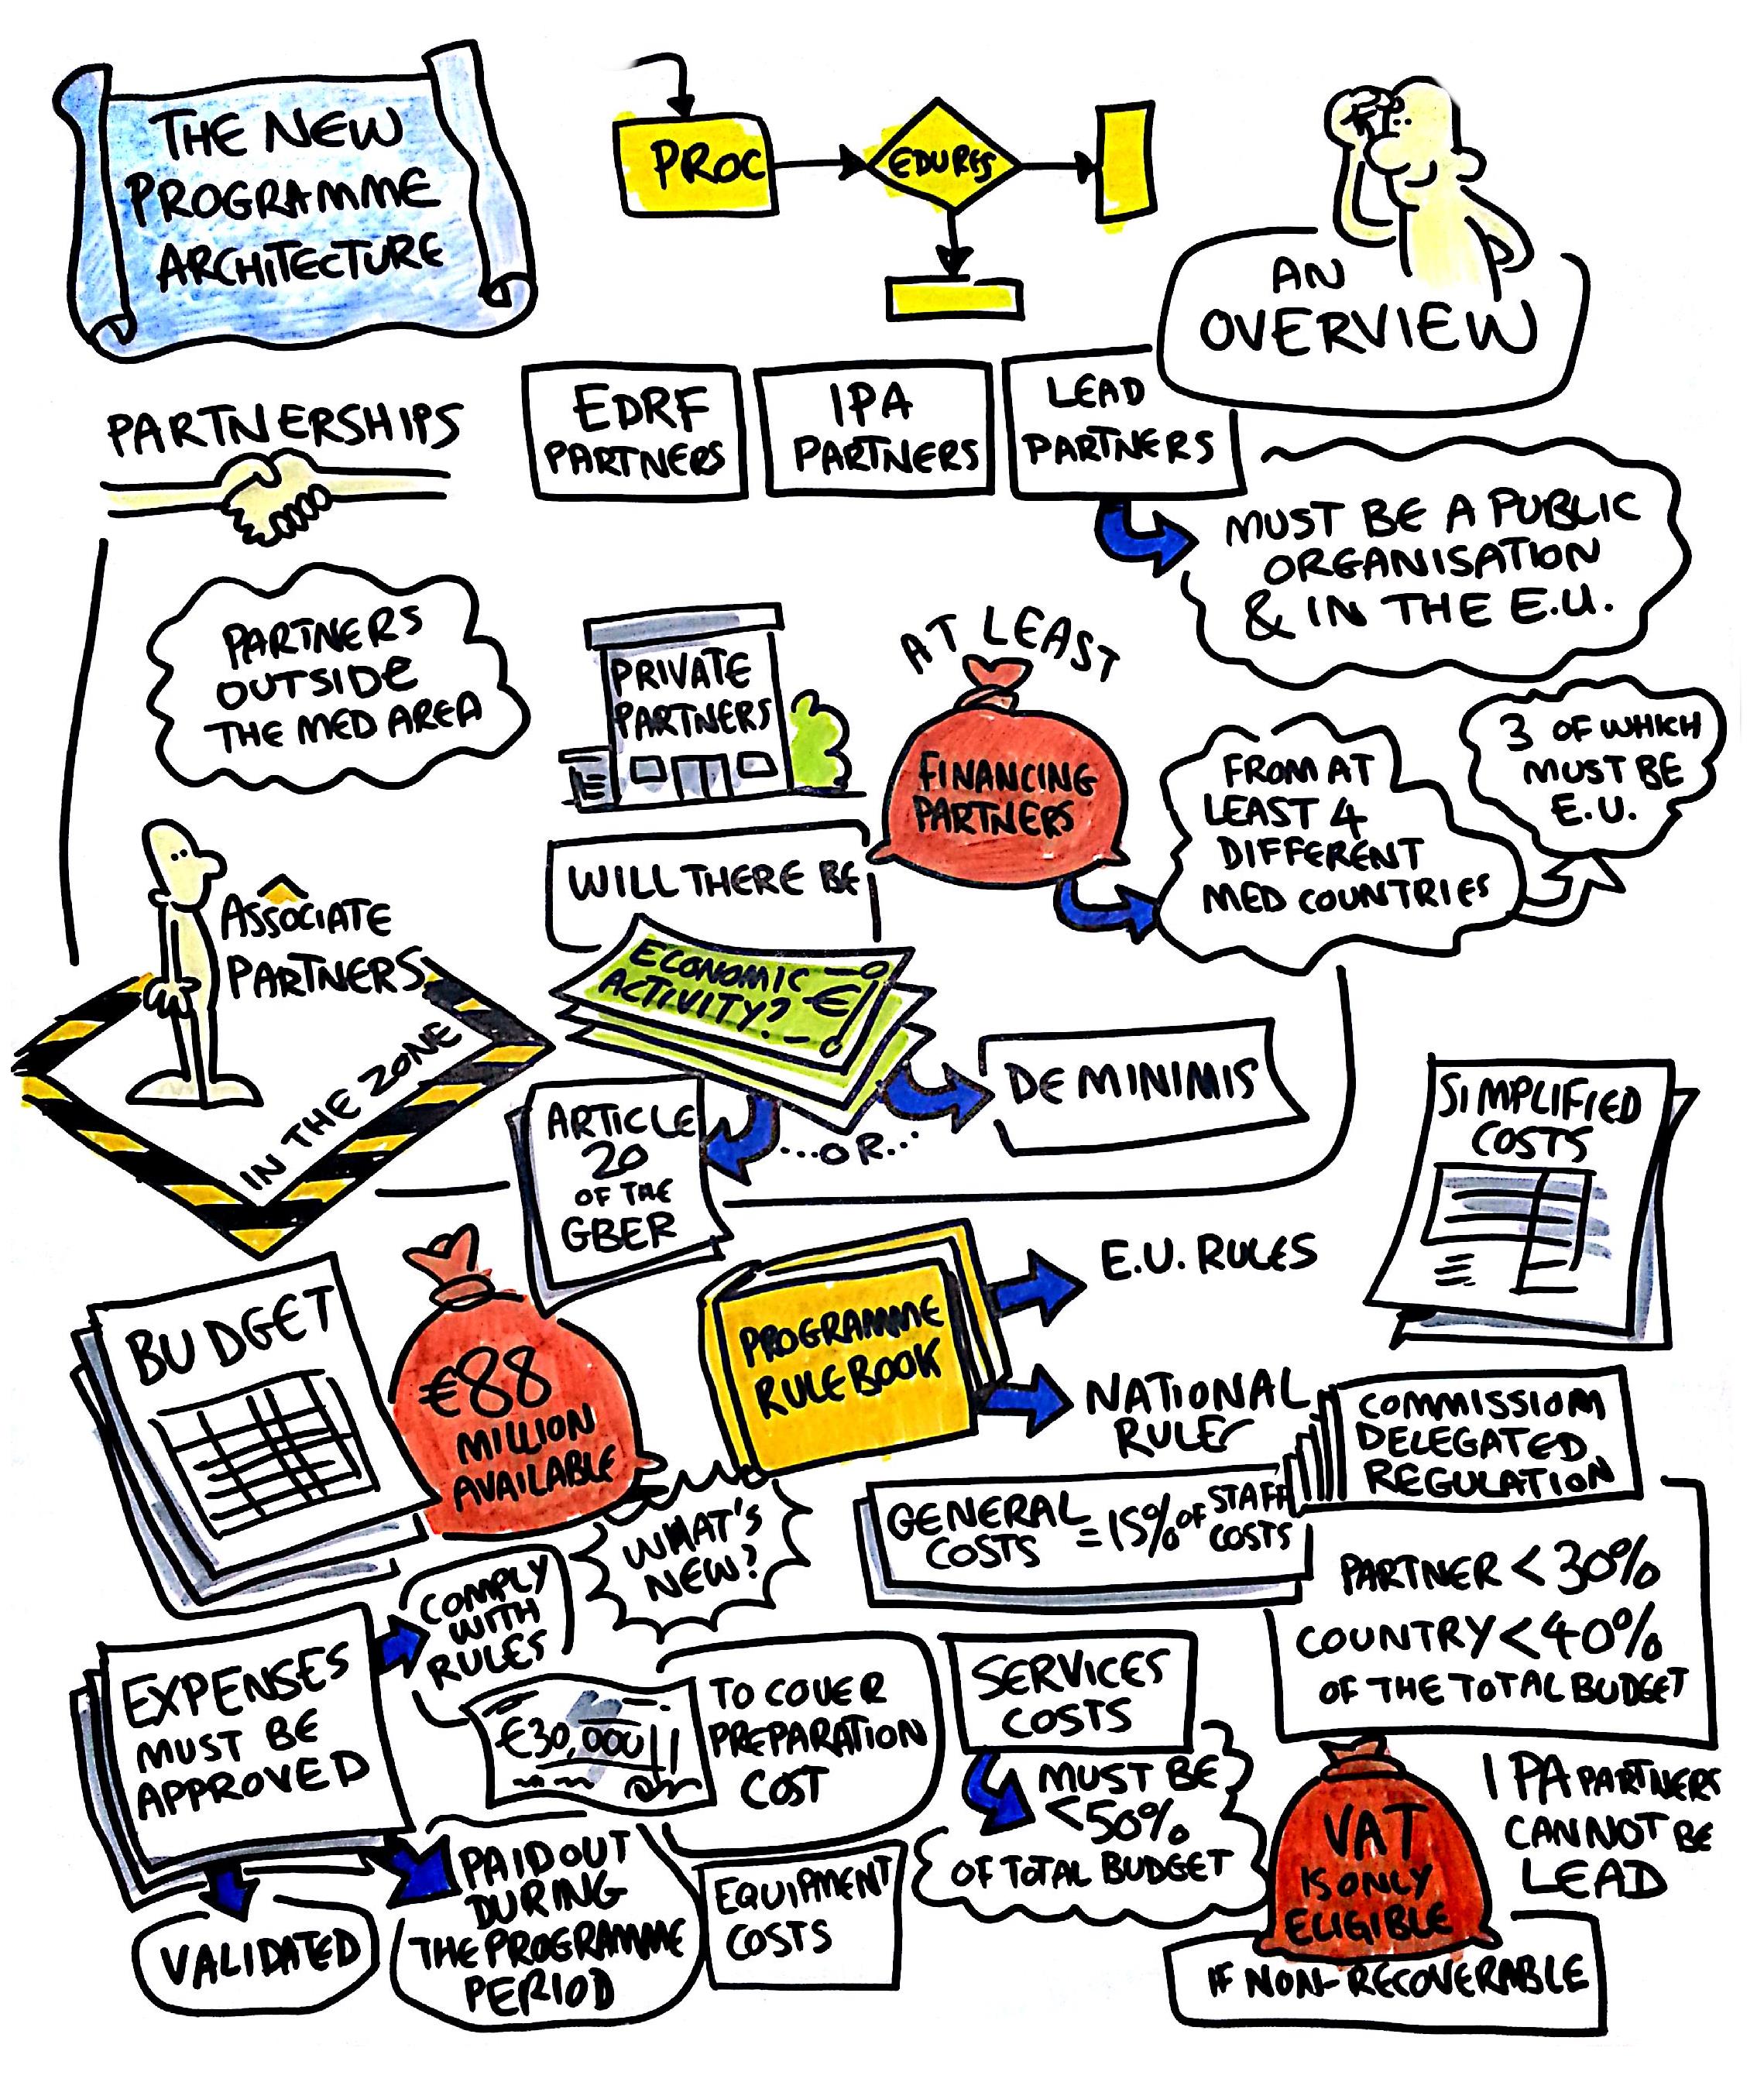 THE NEW
PROGRAMME
ARCHITECTURE
PROC
EDURES
AN
OVERVIEW
PARTNERSHIPS
EDRF
PARTNERS
IPA
PARTNERS
LEAD
PARTNERS
MUST BE A PUBLIC
ORGANISATION
& IN THE E.U.
PARTNERS
OUTSIDE
THE MED AREA
PRIVATE
PARTNERS
AT LEAST
FINANCING
PARTNERS
FROM AT
LEAST 4
DIFFERENT
MED COUNTRIES
3 OF WHICH
MUST BE
E.U.
ASSOCIATE
PARTNERS
IN THE ZONE
WILL THERE BE
ECONOMIC
ACTIVITY?
€
...OR...
DE MINIMIS
ARTICLE
20
OF THE
GBER
SIMPLIFIED
COSTS
BUDGET
€88
MILLION
AVAILABLE
PROGRAMME
RULE BOOK
E.U. RULES
NATIONAL
RULES
COMMISSIOM
DELEGATED
REGULATION
WHAT'S
NEW?
GENERAL
COSTS
= 15% OF STAFF
COSTS
PARTNER < 30%
COUNTRY < 40%
OF THE TOTAL BUDGET
EXPENSES
MUST BE
APPROVED
COMPLY
WITH
RULES
€30,000
TO COVER
PREPARATION
COST
SERVICES
COSTS
MUST BE
<50%
OF TOTAL BUDGET
VALIDATED
PAID OUT
DURING
THE PROGRAMME
PERIOD
EQUIPMENT
COSTS
VAT
IS ONLY
ELIGIBLE
IF NON-RECOVERABLE
IPA PARTNERS
CANNOT BE
LEAD